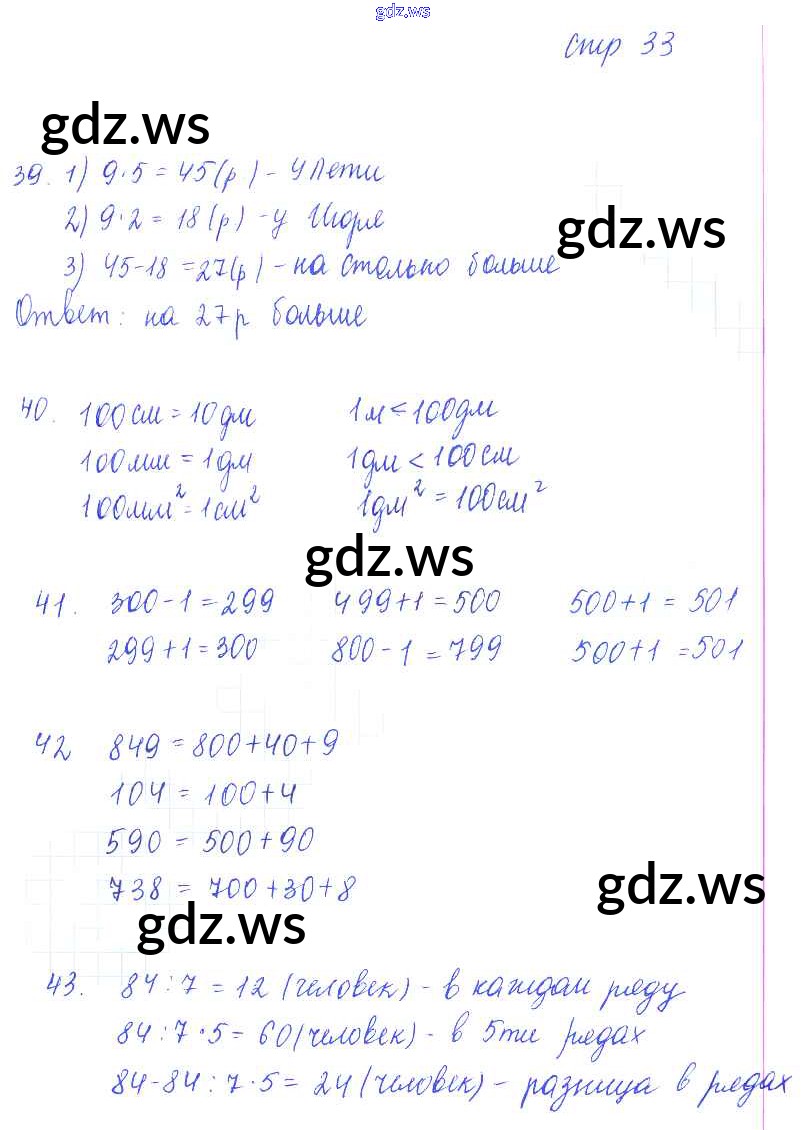 gdz.ws
стр 33
gdz.ws
39. 1) 9·5 = 45(р) - у Пети
2) 9·2 = 18(р) - у Игоря
gdz.ws
3) 45-18 = 27(р) - на столько больше
Ответ: на 27р больше
40. 100см = 10дм 1м < 100дм
100мм = 1дм 1дм < 100см
100мм² = 1см² 1дм² = 100см²
gdz.ws
41. 300-1 = 299 499+1 = 500 500+1 = 501
299+1 = 300 800-1 = 799 500+1 = 501
42 849 = 800+40+9
104 = 100+4
590 = 500+90
738 = 700+30+8
gdz.ws
gdz.ws
43. 84:7 = 12 (человек) - в каждом ряду
84:7·5 = 60(человек) - в 5ти рядах
84-84:7·5 = 24(человек) - разница в рядах